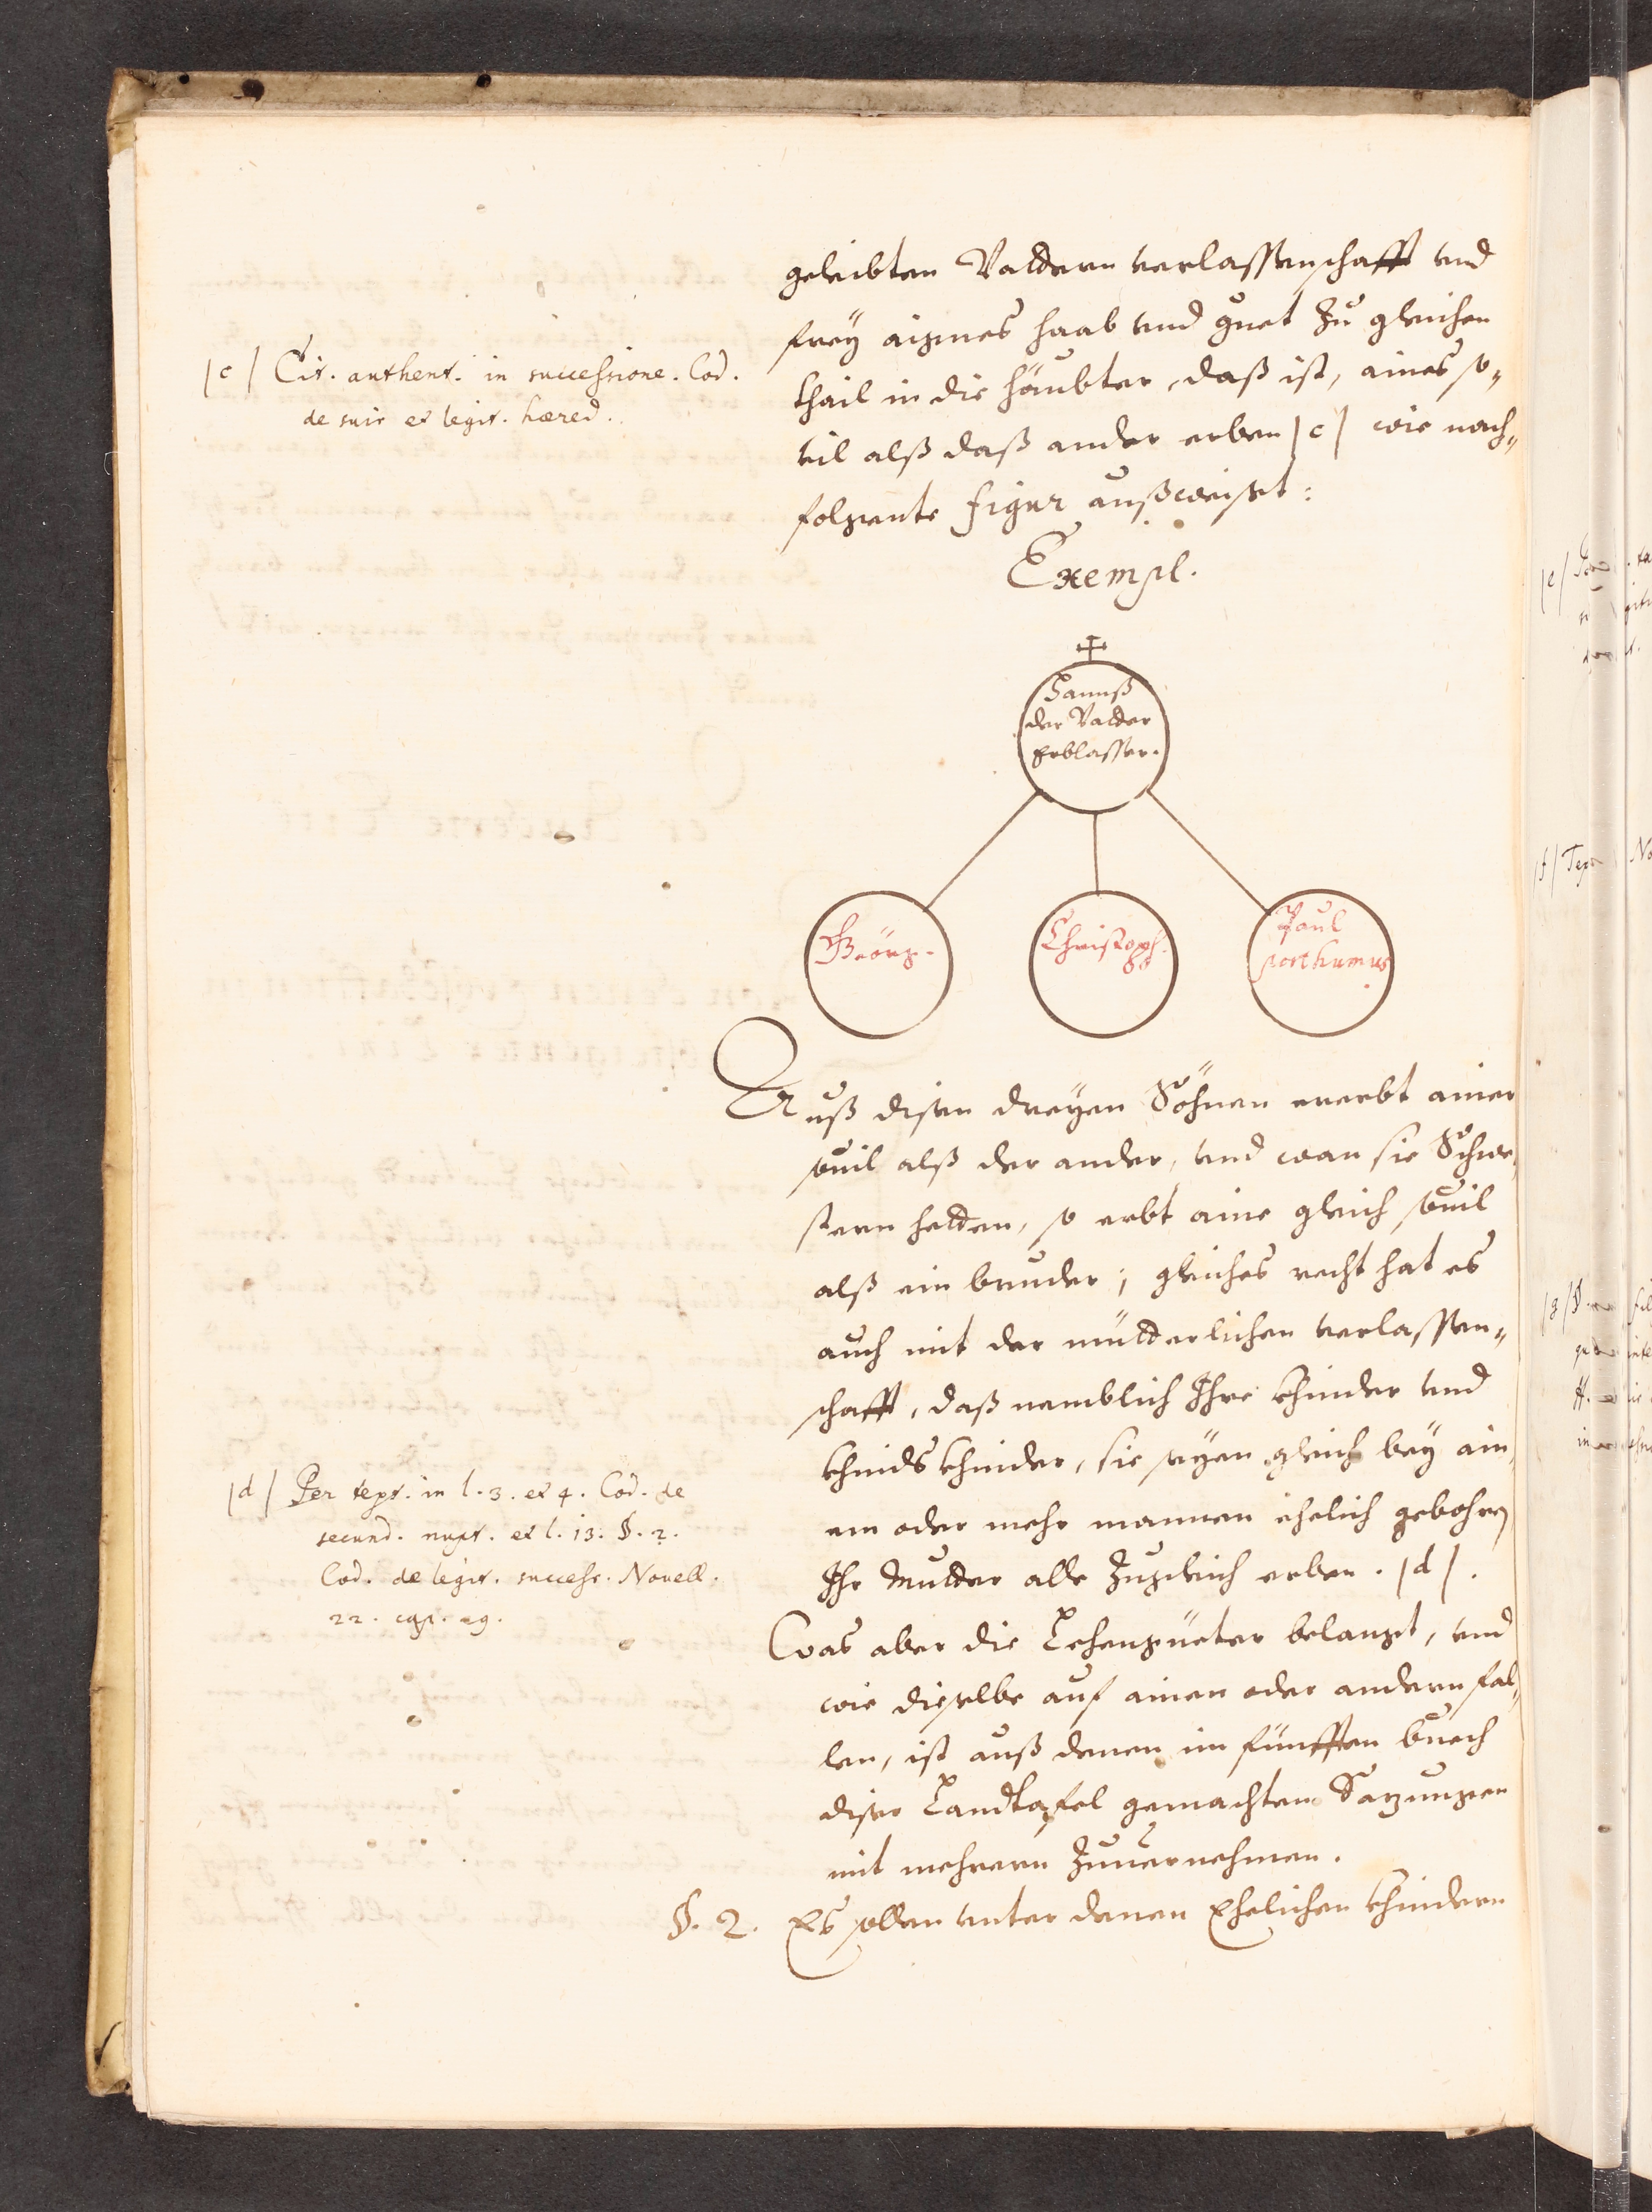 geleibten Vattern verlassenschafft vnd
frey aignes haab vnd guet Zu gleichen
thail in die häubter, daß ist, aines so„
vil alß daß ander erben |c| wie nach„
folgente figur außweiset:
|c| Cit. authent. in successione. Cod.
de suis et legit. hæred.
Exempl.
Hannß
der Vatter
Erblasser.
Geörg.
Christoph.
Paul
posthumus
.
Auß disen dreyen Söhnen ererbt ainer
souil alß der ander, vnd wan sie Schwe„
stern hetten, so erbt aine gleich souil
alß ein bruder; gleiches recht hat es
auch mit der müetterlichen verlassen„
schafft, daß namblich Ihre khinder vnd
khindskhinder, sie seyen gleich bey ain„
em oder mehr mannen ehelich gebohren
Ihr Mutter alle Zugleich erben. |d|.
|d| Per text. in l. 3. et 4. Cod. de
secund. nupt. et l. 13. §. 2.
Cod. de legit. success. Nouell.
22. cap. 29.
Was aber die Lehengüeter belangt, vnd
wie dieselbe auf ainen oder andern fal„
len, ist auß denen im fünfften buech
diser Landtafel gemachten Satzungen
mit mehrern Zuuernehmen.
§. 2. Es sollen vnter denen Ehelichen khindern